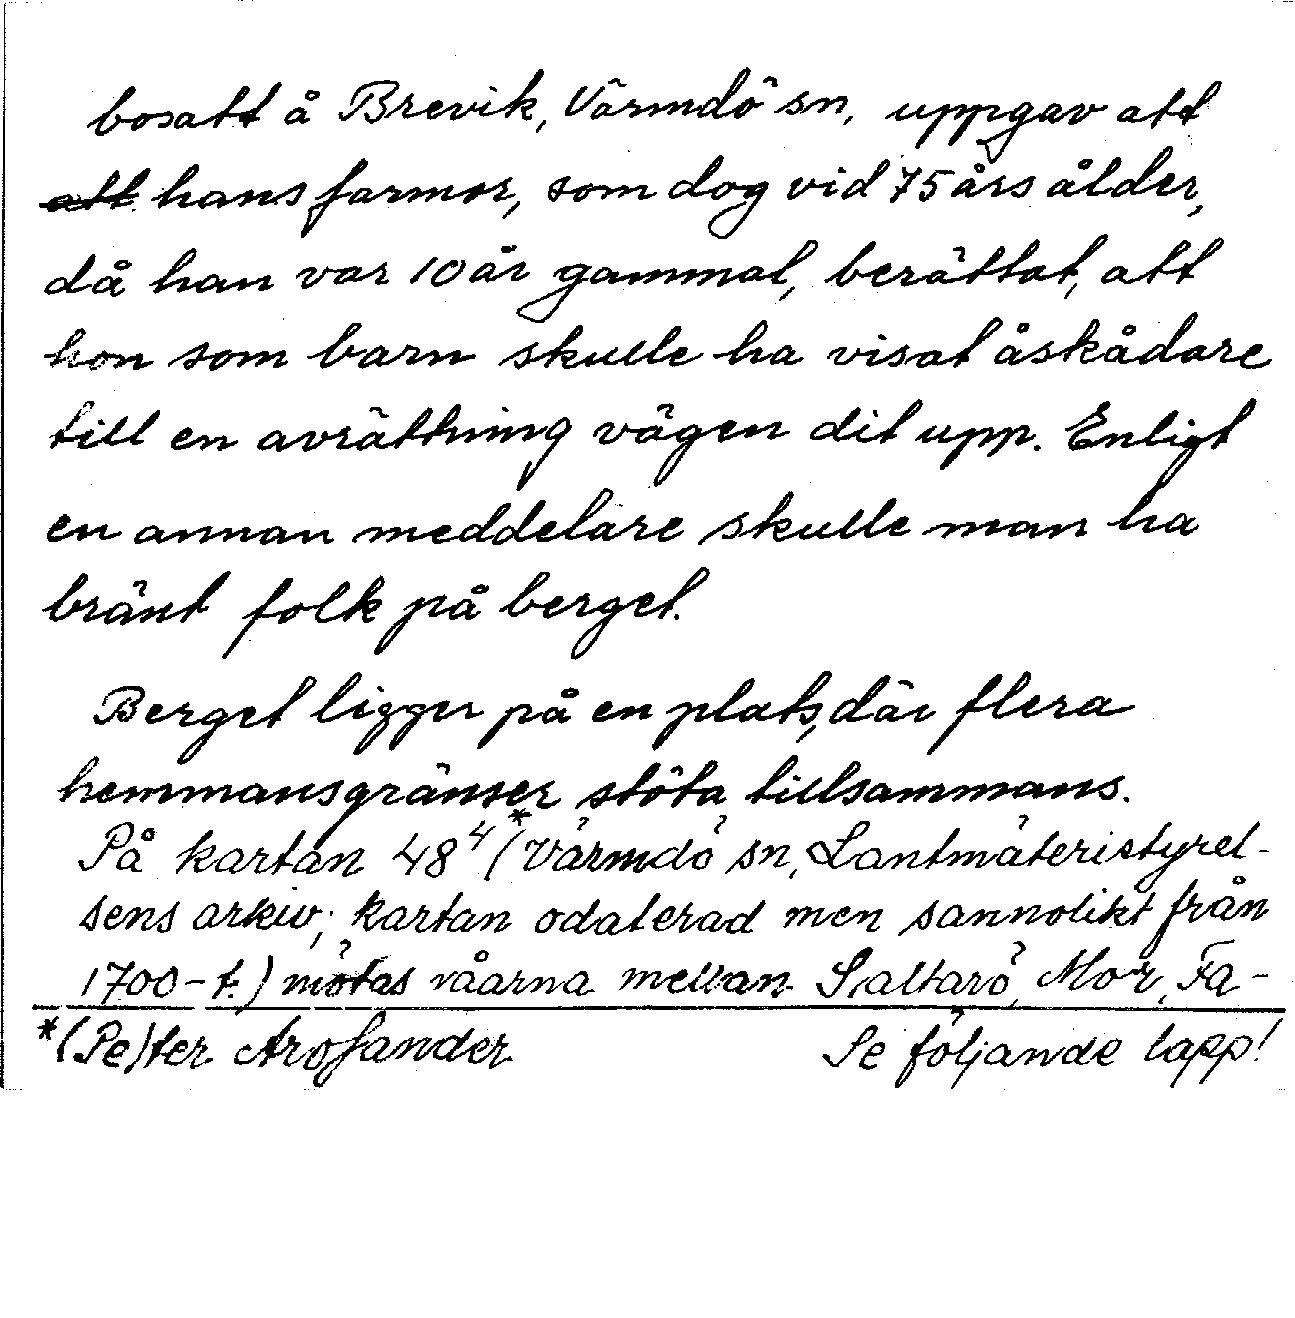 bosatt å Brevik, Värmdö sn, uppgav att
att hans farmor, som dog vid 75 års ålder,
då han var 10 år gammal, berättat, att
hon som barn skulle ha visat åskådare
till en avrättning vägen dit upp. Enligt
en annan meddelare skulle man ha
bränt folk på berget.
Berget ligger på en plats, där flera
hemmansgränser stöta tillsammans.
På kartan 48⁴ (* Värmdö sn, Lantmäteristyrel-
sens arkiv; kartan odaterad men sannolikt från
1700-t.) mötas råarna mellan Saltarö, Mor, Fa-
*(Pe)ter Arosander
Se följande lapp!